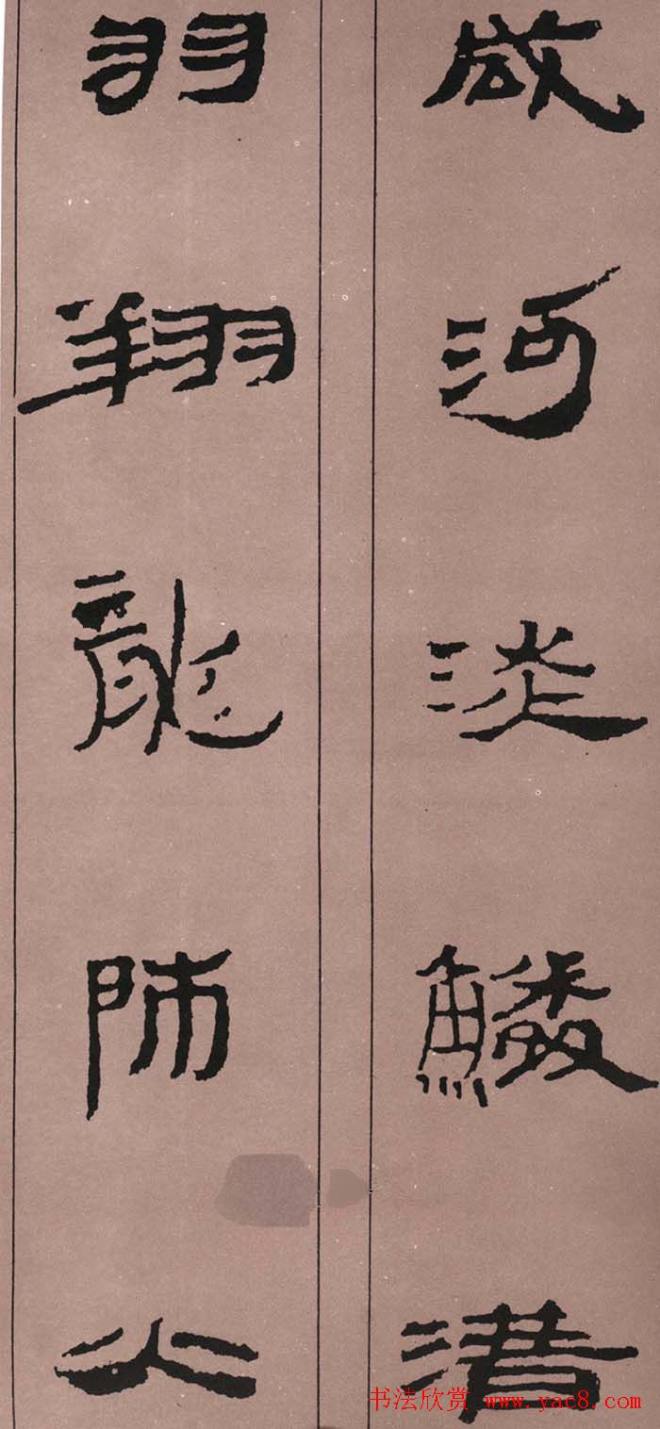 咸河淡鱗潛
羽翔龍師火
书法欣赏 www.yac8.com